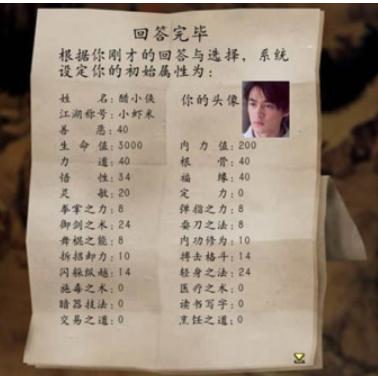 回答完毕
根据你刚才的回答与选择，系统
设定你的初始属性为：
姓名：醋小侠 你的头像
江湖称号：小虾米
善恶：40
生命值：3000 内力值：200
力道：40 根骨：40
悟性：34 福缘：40
灵敏：20 定力：0
拳掌之力：8 弹指之力：8
御剑之术：24 耍刀之法：8
舞棍之能：8 内功修为：10
拆招卸力：10 搏击格斗：14
闪躲纵越：14 轻身之法：24
施毒之术：0 医疗之术：0
暗器技法：0 读书写字：0
交易之道：0 烹饪之道：0